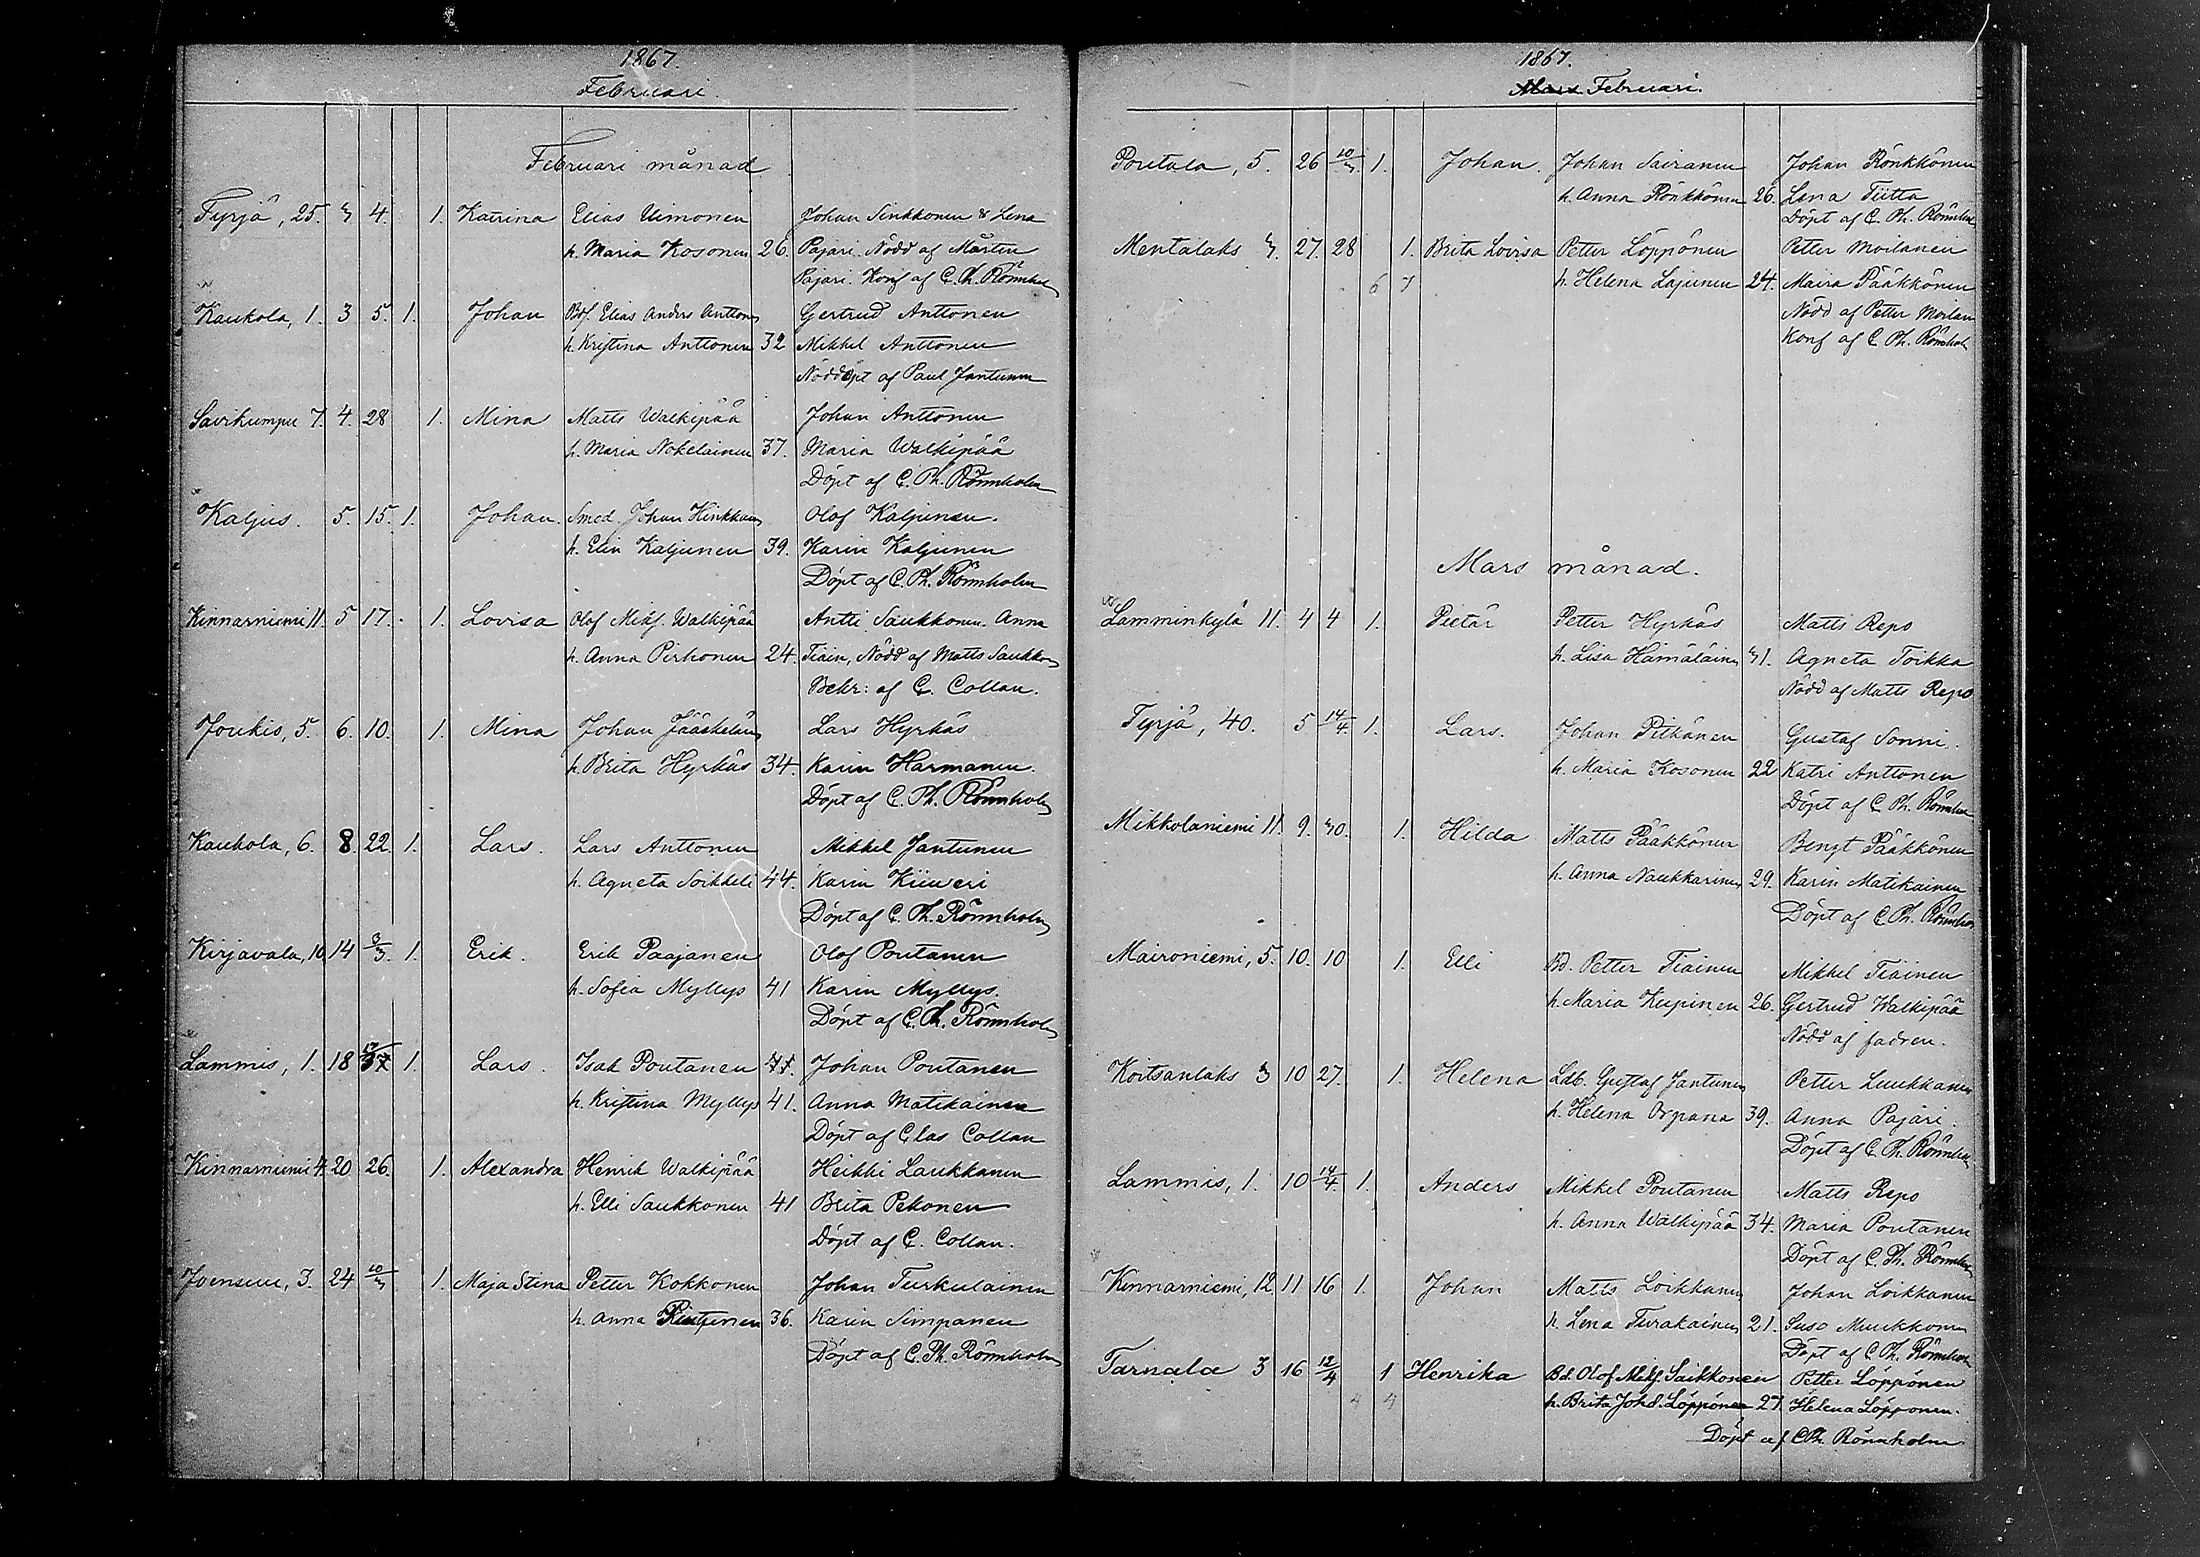 1867.
Februari.
Februari månad
Tyrjä, 25. 3 4. 1. Katrina Elias Uimonen Johan Sinkkonen & Lena
h. Maria Kosonen 26. Pajari. Nödd af Mårten
Pajari. Konf af C. Th. Rönnholm
Kaukola, 1. 3 5. 1. Johan Bdf. Elias Anders Anttonen Gertrud Anttonen
h. Kristina Anttonen 32 Mikkel Anttonen
Nöddöpt af Paul Jantunen
Savikumpu 7. 4. 28 1. Mina Matts Walkipää Johan Anttonen
h. Maria Nokelainen 37. Maria Walkipää
Döpt af C. Th. Rönnholm
Kaljus. 5. 15. 1. Johan. Smed. Johan Hinkkanen Olof Kaljunen.
h. Elin Kaljunen 39. Karin Kaljunen
Döpt af C. Th. Rönnholm
Kinnarniemi 11. 5 17. 1. Lovisa Olof Mikf. Walkipää Antti Saukkonen. Anna
h. Anna Pirhonen 24. Tiain, Nödd af Matts Saukkonen
Bekr: af C. Collan.
Joukis, 5. 6. 10. 1. Mina Johan Jääskeläinen Lars Hyrkäs
h. Brita Hyrkäs 34. Karin Harmanen.
Döpt af C. Th. Rönnholm
Kaukola, 6. 8. 22. 1. Lars. Lars Anttonen Mikkel Jantunen
h. Agneta Soikkeli 44. Karin Kiiweri
Döpt af C. Th. Rönnholm
Kirjavala, 10 14 3/3 1. Erik. Erik Paajanen Olof Poutanen
h. Sofia Myllys 41 Karin Myllys.
Döpt af C. Th. Rönnholm
Lammis, 1. 18 1. Lars. Isak Poutanen Johan Poutanen
h. Kristina Myllys 41. Anna Matikainen
Döpt af Clas Collan
Kinnarniemi 4. 20 26. 1. Alexandra Henrik Walkipää Heikki Laukkanen
h. Elli Saukkonen 41 Brita Pekonen
Döpt af C. Collan.
Joensuu, 3. 24 10/3 1. Maja Stina Petter Kokkonen Johan Turkulainen
h. Anna 36. Karin Simpanen
Döpt af C. Th. Rönnholm
1867.
Mars Februari.
Poutala, 5. 26 10/3 1. Johan. Johan Sairanen Johan Rönkkönen
h. Anna Rönkkönen 26. Lena Tiitta
Döpt af C. Th. Rönnholm
Mentalaks 3. 27. 28 1. Brita Lovisa Petter Löppönen Petter Moilanen
6 7 h. Helena Lajunen 24. Maria Pääkkönen
Nödd af Petter Moilanen
Konf af C. Th. Rönnholm
Mars månad.
Lamminkylä 11. 4 4 1. Pietär Petter Hyrkäs Matts Repo
h. Lisa Hämäläinen 31. Agneta Toikka
Nödd af Matts Repo
Tyrjä, 40. 5 14/4 1. Lars. Johan Pitkänen Gustaf Sonni.
h. Maria Kosonen 22 Katri Anttonen
Döpt af C. Th. Rönnholm
Mikkolaniemi 11. 9. 30. 1. Hilda Matts Pääkkönen Bengt Pääkkönen
h. Anna Naukkarinen 29. Karin Matikainen
Döpt af C. Th. Rönnholm
Maironiemi, 5. 10. 10 1. Elli Bd. Petter Tiainen Mikkel Tiainen
h. Maria Kupinen 26. Gertrud Walkipää
Nödd af fadren.
Koitsanlaks 3 10 27. 1. Helena Ldb. Gustaf Jantunen Petter Luukkanen
h. Helena Orpana 39. Anna Pajari.
Döpt af C. Th. Rönnholm
Lammis, 1. 10 14/4. 1. Anders Mikkel Poutanen Matts Repo
h. Anna Walkipää 34. Maria Poutanen
Döpt af C. Th. Rönnholm
Kinnarniemi, 12 11 16 1. Johan Matts Loikkanen Johan Loikkanen
h. Lena Turakainen 21. Suso Muukkonen
Döpt af C. Th. Rönnholm
Tarnala 3 16 12/4 1 Henrika Bd. Olof Mikf. Saikkonen Petter Löppönen
4 4 h. Brita Johd. Löppönen 27. Helena Löppönen.
Döpt af CTh Rönnholm